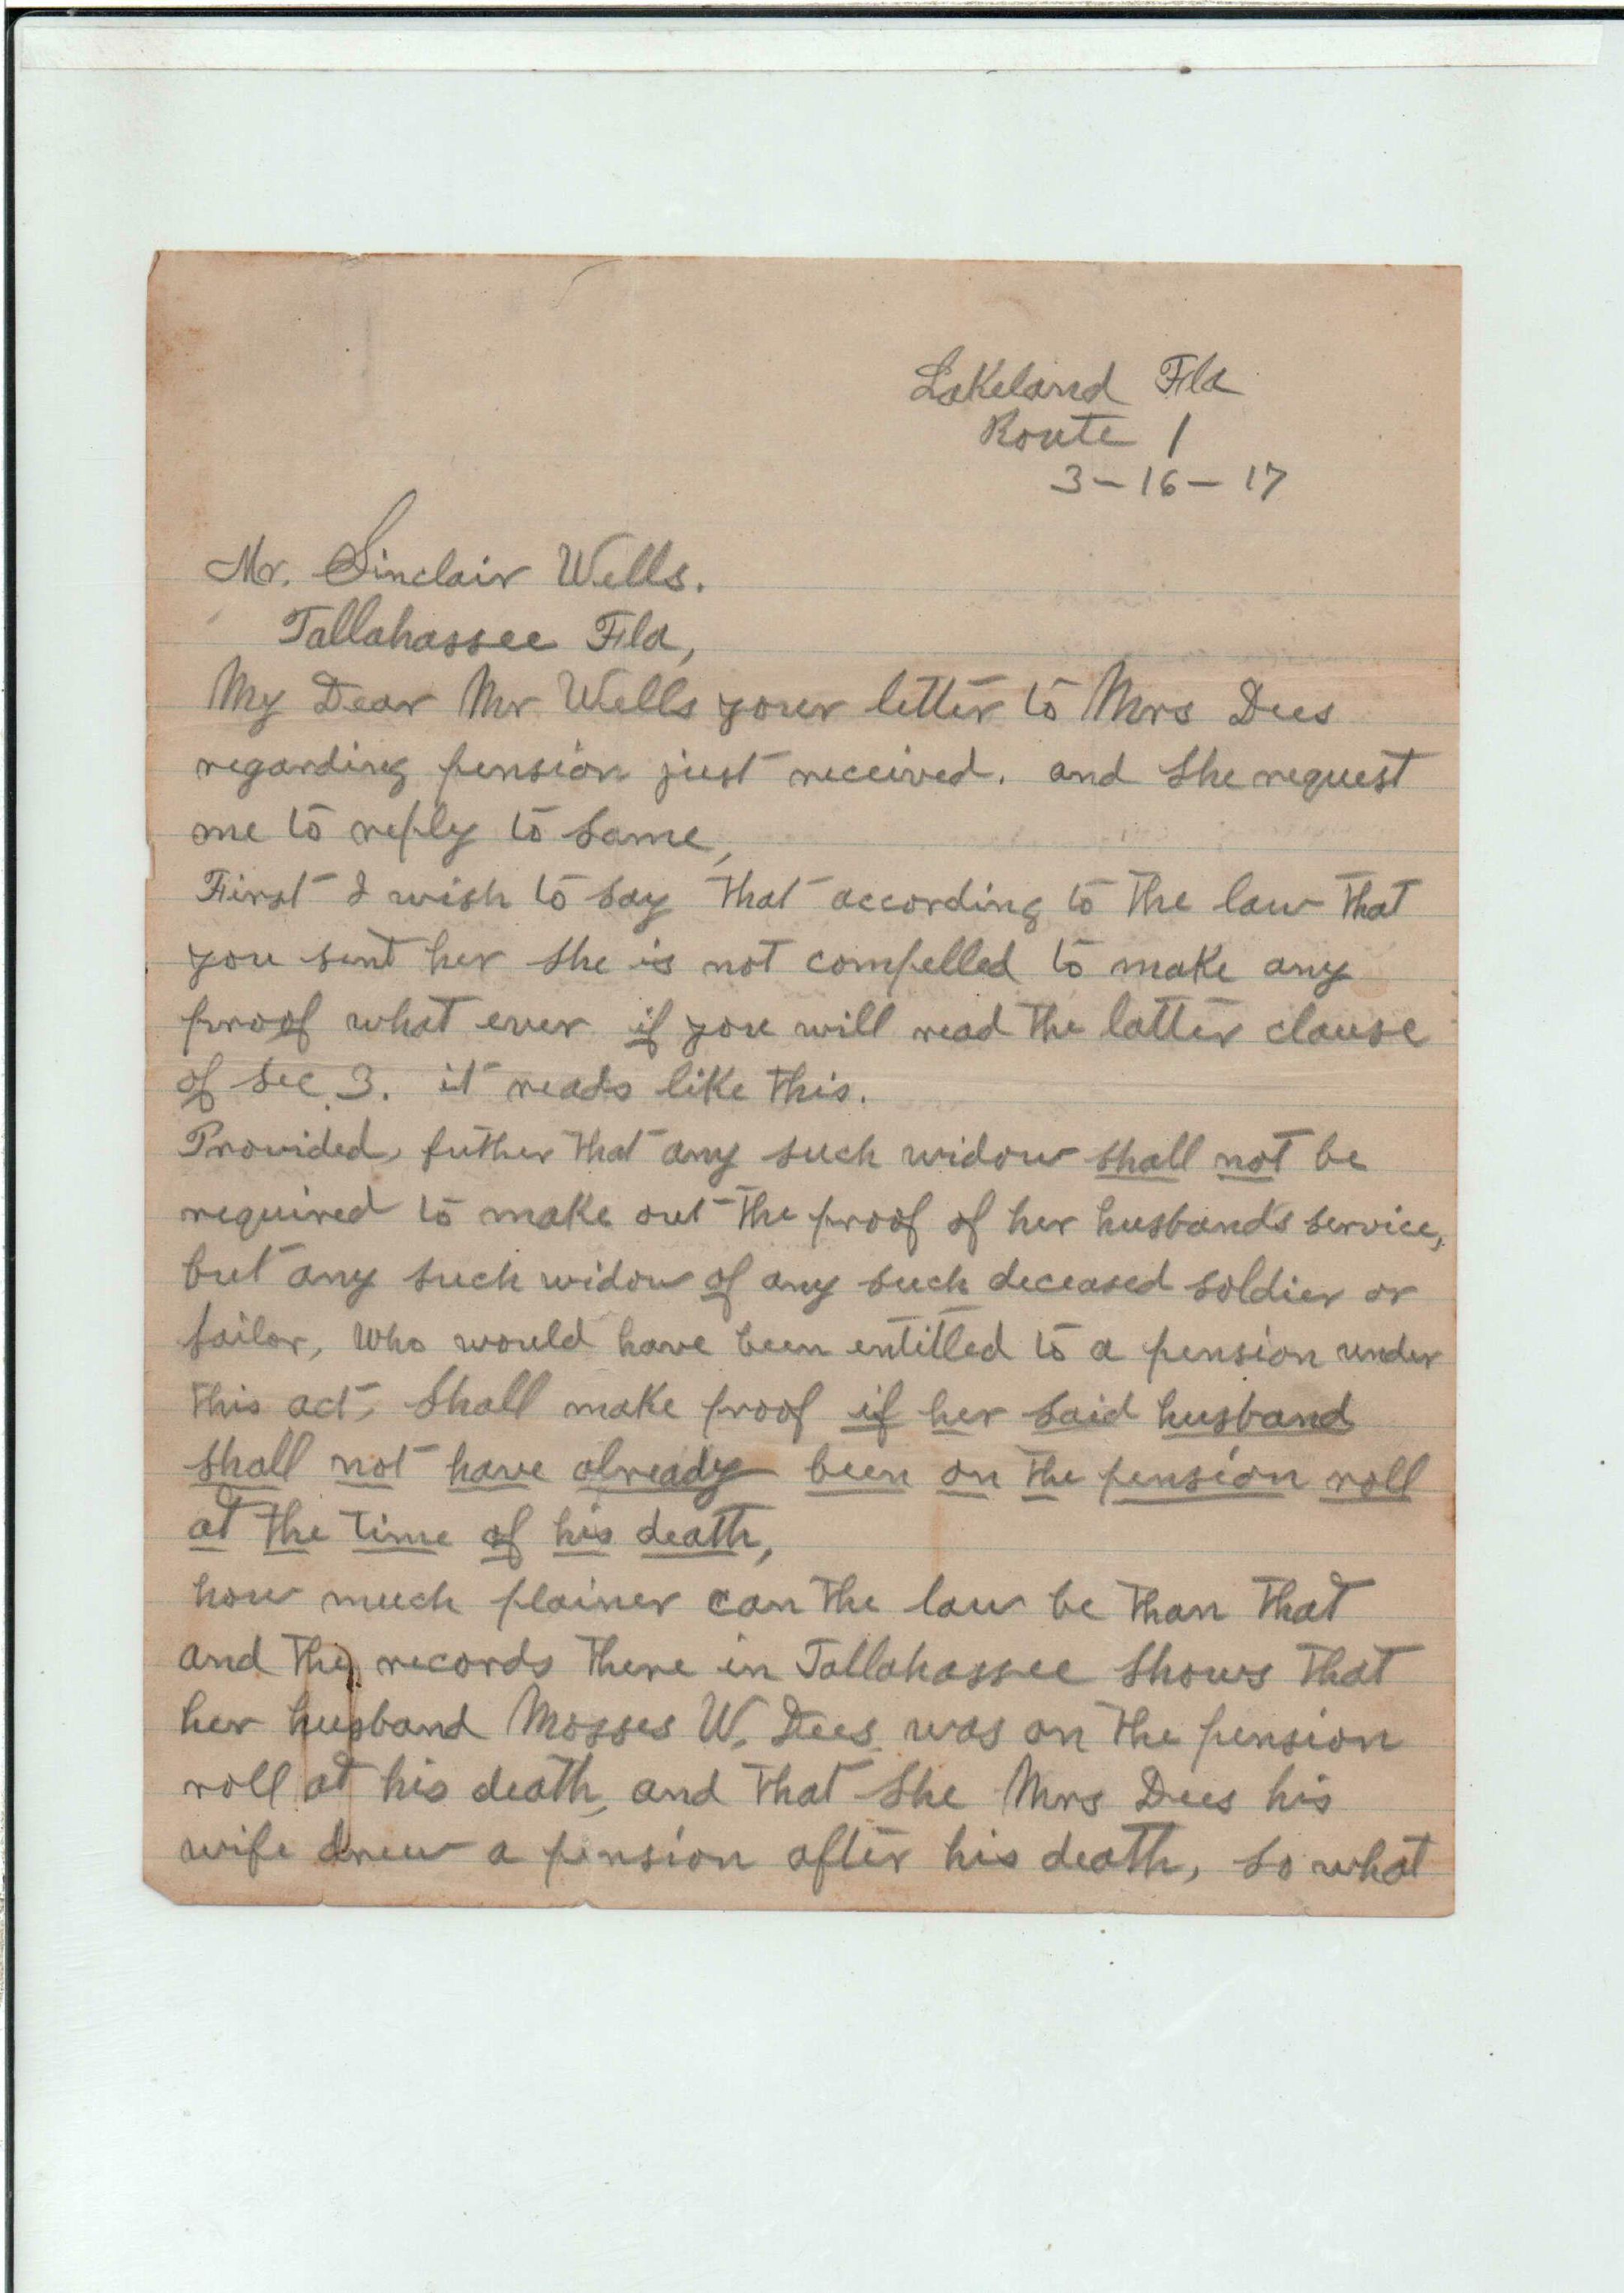 Lakeland Fla
Route 1
3-16-17
Mr. Sinclair Wells.
Tallahassee Fla,
My Dear Mr Wells your letter to Mrs Dees
regarding pension just received. and she request
me to reply to same,
First I wish to say that according to the law that
you sent her she is not compelled to make any
proof what ever if you will read the latter clause
of sec. 3. it reads like this.
Provided, futher that any such widow shall not be
required to make out the proof of her husbands service,
but any such widow of any such deceased soldier or
sailor, who would have been entitled to a pension under
this act, shall make proof if her said husband
shall not have already been on the pension roll
at the time of his death,
how much plainer can the law be than that
and the records there in Tallahassee shows that
her husband Mosses W. Dees was on the pension
roll at his death, and that she Mrs Dees his
wife drew a pension after his death, so what